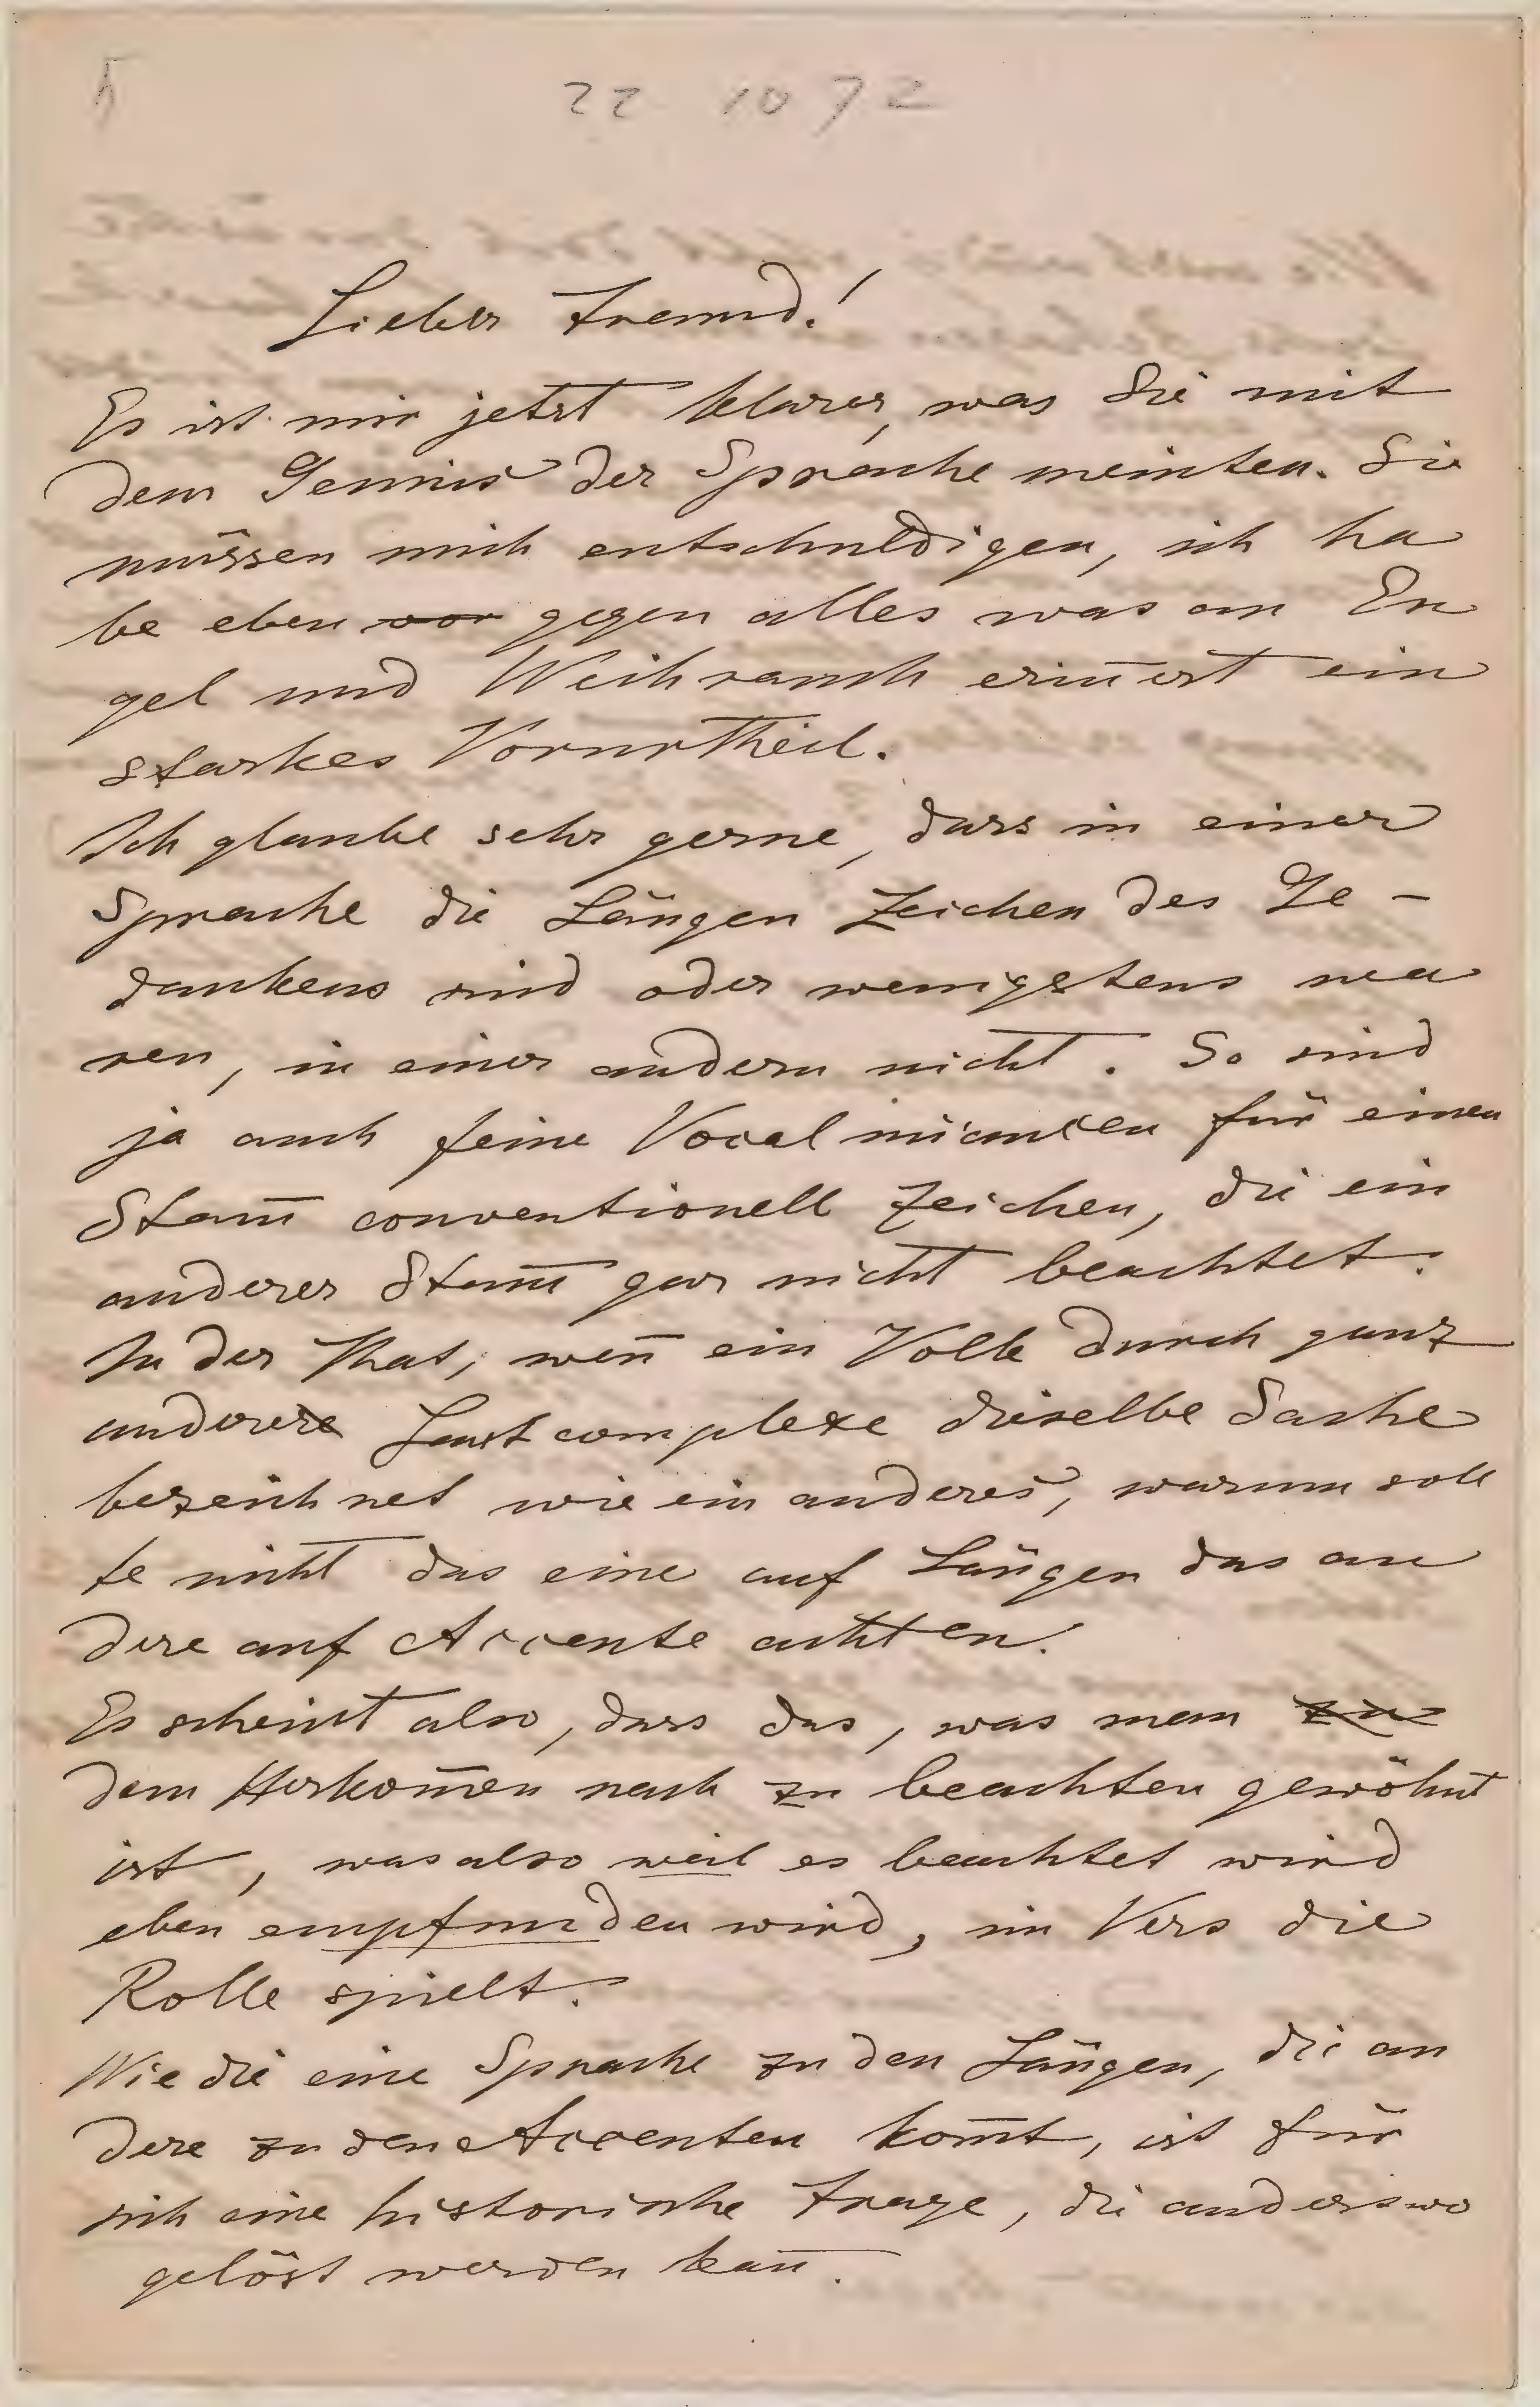 22 10 72
Lieber Freund!
Es ist mir jetzt klarer, was Sie mit
dem Genius der Sprache meinten. Sie
müssen mich entschuldigen, ich ha
be eben vor gegen alles was an En
gel und Weihrauch eriñert ein
starkes Vorurtheil.
Ich glaube sehr gerne, dass in einer
Sprache die Längen Zeichen des Ge-
dankens sind oder wenigstens wa
ren, in einer andern nicht. So sind
ja auch feine Vocalnüancen für einen
Stam̄ conventionell Zeichen, die ein
anderer Stam̄ gar nicht beachtet.
In der That, weñ ein Volk durch ganz
andere Lautcomplexe dieselbe Sache
bezeichnet wie ein anderes, warum soll
te nicht das eine auf Längen das an
dere auf Accente achten.
Es scheint also, dass das, was man zu
dem Herkom̄en nach zu beachten gewöhnt
ist, was also weil es beachtet wird
eben empfunden wird, im Vers die
Rolle spielt.
Wie die eine Sprache zu den Längen, die an
dere zu den Accenten kom̄t, ist für
sich eine historische Frage, die anderswo
gelöst werden kañ.